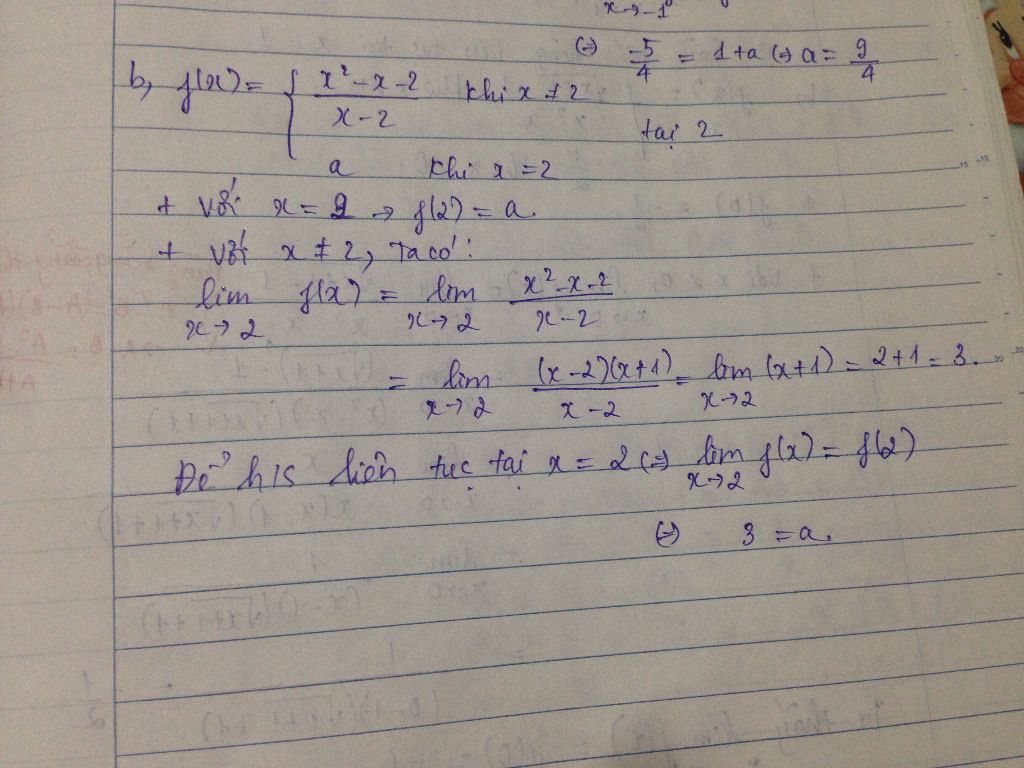 x→-1
(=) -5/4 = 1+a (=) a = 9/4
b, f(x) = { x²-x-2 / x-2 khi x ≠ 2
tại 2
a khi x = 2
+ với x = 2 → f(2) = a.
+ với x ≠ 2, Ta có :
lim x→2 f(x) = lim x→2 x²-x-2 / x-2
= lim x→2 (x-2)(x+1) / x-2 = lim x→2 (x+1) = 2+1 = 3.
Để h/s liên tục tại x = 2 (=) lim x→2 f(x) = f(2)
(=) 3 = a.